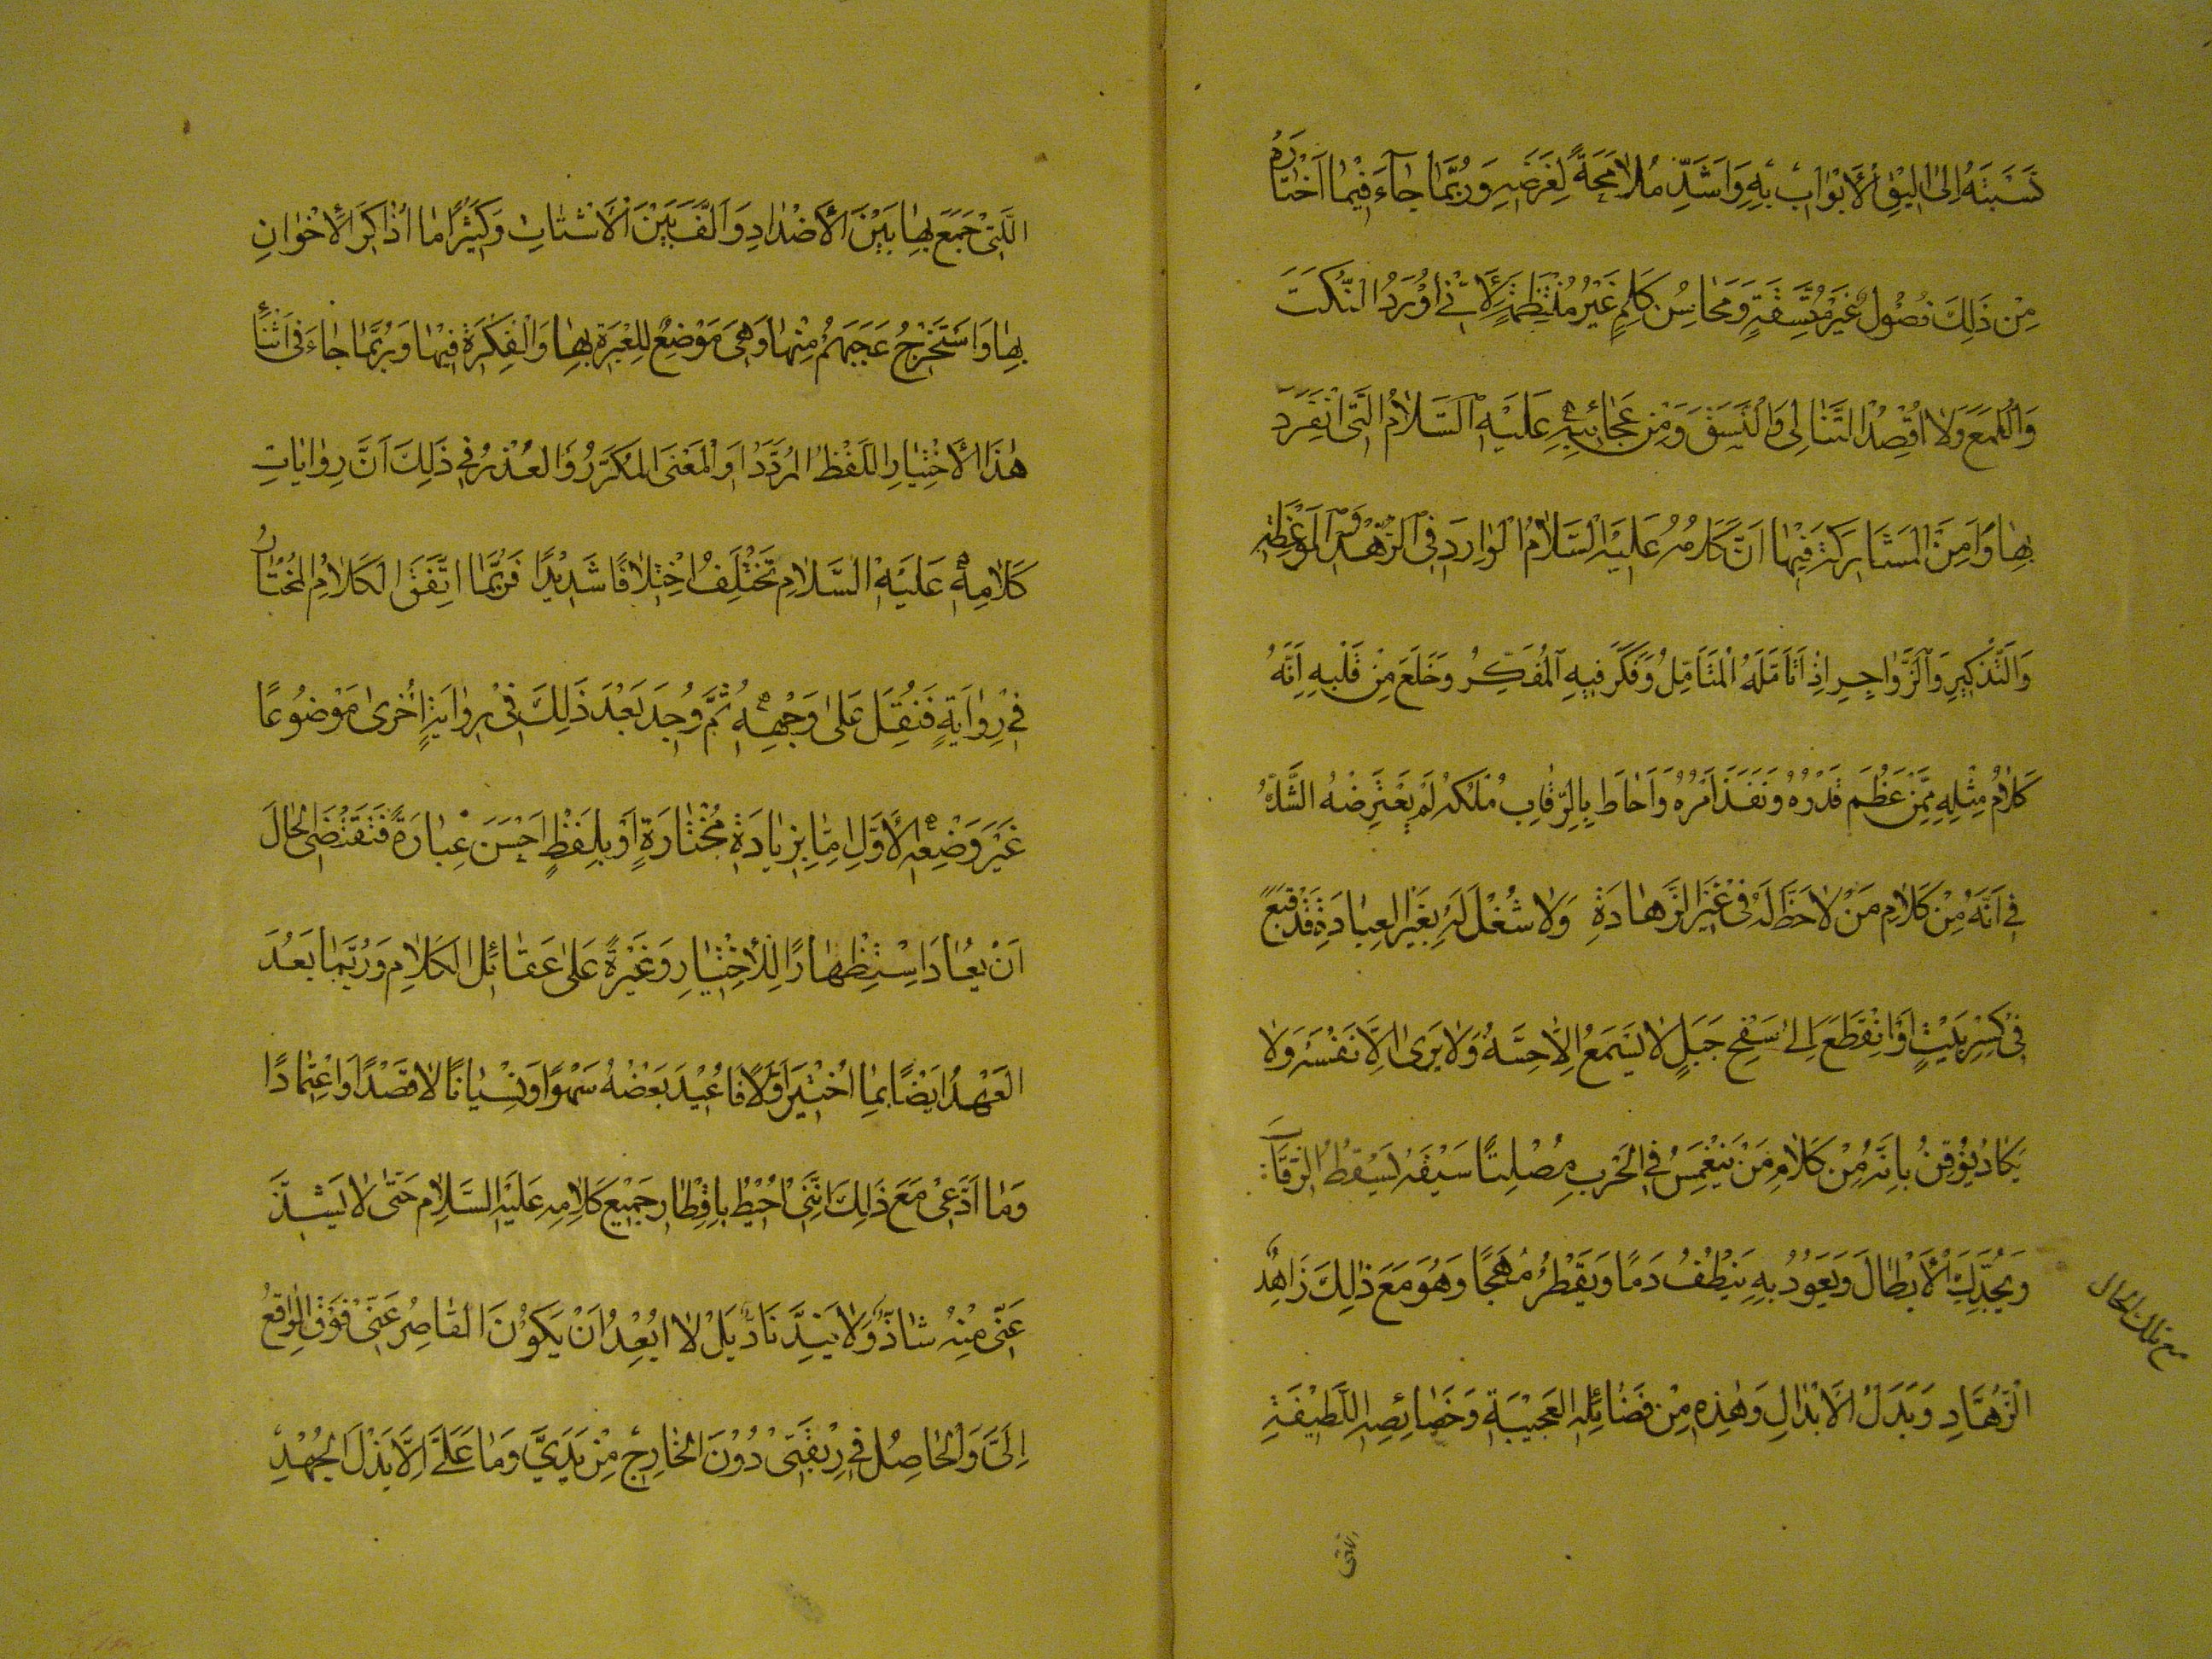 نَسَبْتَهُ اِلىٰ اَلْيَقِ الْأَبْوٰابِ بِهِ وَاَشَدِّ مُلاٰمَحَةً لِغَرَضِهِ وَرُبَّمٰا جٰآءَ فيمٰا اَخْتٰارُهُ
مِنْ ذَلِكَ فُصُولٌ غَيْرُ مُتَّسِقَةٍ وَمَحٰاسِنُ كَلِمٍ غَيْرُ مُنْتَظِمَةٍ لِأَنّي اُوْرِدُ النُّكَتَ
وَاللُّمَعَ وَلاٰ اَقْصِدُ التَّتٰالِىَ وَالنَّسَقَ وَمِنْ عَجٰائِبِهِ عَلَيْهِ السَّلاٰمُ الَّتى انْفَرَدَ
بِهٰا وَاَمِنَ الْمُشٰارَكَةَ فيهٰا اَنَّ كَلاٰمَهُ عَلَيْهِ السَّلاٰمُ الْوٰارِدَ فِى الزُّهْدِ وَالْمَوٰعِظِ
وَالتَّذْكيرِ وَالزَّوٰاجِرِ اِذٰا تَاَمَّلَهُ الْمُتَاَمِّلُ وَفَكَّرَ فيهِ الْمُفَكِّرُ وَخَلَعَ مِنْ قَلْبِهِ اَنَّهُ
كَلاٰمُ مِثْلِهِ مِمَّنْ عَظُمَ قَدْرُهُ وَنَفَذَ اَمْرُهُ وَاَحٰاطَ بِالرِّقٰابِ مُلْكُهُ لَمْ يَعْتَرِضْهُ الشَّكُّ
في اَنَّهُ مِنْ كَلاٰمِ مَنْ لاٰ حَظَّ لَهُ فى غَيْرِ الزَّهٰادَةِ وَلاٰ شُغْلَ لَهُ بِغَيْرِ الْعِبٰادَةِ قَدْ قَبَعَ
فى كِسْرِ بَيْتٍ اَوِ انْقَطَعَ اِلىٰ سَفْحِ جَبَلٍ لاٰ يَسْمَعُ اِلاّٰ حِسَّهُ وَلاٰ يَرىٰ اِلاَّ نَفْسَهُ وَلاٰ
يَكٰادُ يُوقِنُ بِاَنَّهُ مِنْ كَلاٰمِ مَنْ يَنْغَمِسُ فِى الْحَرْبِ مُصْلِتًا سَيْفَهُ لِيَسْقُطَ الرِّقٰابَ
وَيُجَدِّلُ الْأَبْطٰالَ وَيَعُودُ بِهِ يَنْطُفُ دَمًا وَيَقْطُرُ مُهَجًا وَهُوَ مَعَ ذٰلِكَ زٰاهِدُ
مع تلك الحال
الزُّهّٰادِ وَبَدَلُ الْأَبْدٰالِ وَهٰذِهِ مِنْ فَضٰائِلِهِ الْعَجيبَةِ وَخَصٰائِصِهِ اللَّطيفَةِ
الَّتى جَمَعَ بِهٰا بَيْنَ الْأَضْدٰادِ وَاَلَّفَ بَيْنَ الْأَشْتٰاتِ وَكَثيرًا مٰا اُذٰاكِرُ الْأَخْوٰانِ
بِهٰا وَاَسْتَخْرِجُ عَجَبَهُمْ مِنْهٰا وَهِىَ مَوْضِعٌ لِلْعِبْرَةِ بِهٰا وَالْفِكْرَةِ فيهٰا وَرُبَّمٰا جٰاءَ فى اَثْنٰاءِ
هٰذَا الْأَخْتِيٰارِ اللَّفْظُ الْمُرَدَّدُ اَوِ الْمَعْنَى الْمُكَرَّرُ وَالْعُذْرُ فى ذَلِكَ اَنَّ رِوٰايٰاتِ
كَلاٰمِهِ عَلَيْهِ السَّلاٰمِ تَخْتَلِفُ اخْتِلاٰفًا شَديدًا فَرُبَّمَا اتَّفَقَ الْكَلاٰمُ الْمُخْتٰارُ
فى رِوٰايَةٍ فَنُقِلَ عَلىٰ وَجْهِهِ ثُمَّ وُجِدَ بَعْدَ ذٰلِكَ فى رِوٰايَةٍ اُخْرىٰ مَوْضُوعًا
غَيْرَ وَضْعِهِ الْأَوَّلِ اِمّٰا بِزِيٰادَةٍ مُخْتٰارَةٍ اَوْ بِلَفْظٍ اَحْسَنَ عِبٰارَةً فَتَقْتَضِى الْحٰالَ
اَنْ يُعٰادَ اسْتِظْهٰارًا لِلْأَخْتِيٰارِ وَغَيْرَةً عَلىٰ عَقٰائِلِ الْكَلاٰمِ وَرُبَّمٰا بَعُدَ
الْعَهْدُ اَيْضًا بِمَا اخْتيرَ اَوَّلاً فَاُعيدَ بَعْضُهُ سَهْوًا وَنِسْيٰانًا لاٰ قَصْدًا وَاعْتِمٰادًا
وَمٰا اَدَّعى مَعَ ذٰلِكَ اَنَّنى اُحيطُ بِاَقْطٰارِ جَميعِ كَلاٰمِهِ عَلَيْهِ السَّلاٰمِ حَتّىٰ لاٰ يَشِذَّ
عَنّى مِنْهُ شٰاذٌّ وَلاٰ يَنِدَّ نٰادٌّ بَلْ لاٰ اُبْعِدُ اَنْ يَكُونَ الْقٰاصِرُ عَنّى فَوْقَ الْوٰاقِعِ
اِلَىَّ وَالْحٰاصِلُ فى رِبْقَتى دُوْنَ الْخٰارِجِ مِنْ يَدَىَّ وَمٰا عَلَىَّ اِلاَّ بَذْلَ الْجُهْدِ